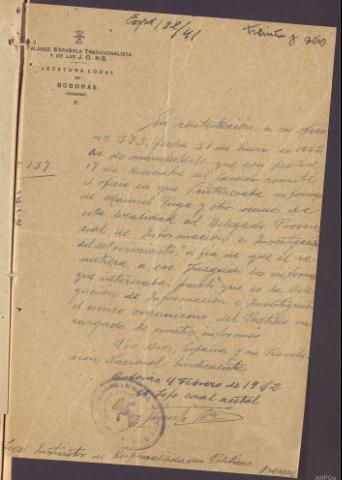 Expd 132/41
Treinta y seis
FALANGE ESPAÑOLA TRADICIONALISTA
Y DE LAS J. O. N-S.
JEFATURA LOCAL
DE
BOBORÁS
(ORENSE)
137
En contestación a su oficio
nº 373, fecha 31 de Enero de 1942
de manifestarle que con fecha
17 de Diciembre del pasado remití
el oficio en que interesaba informes
de Manuel Puga y otro vecino de
esta localidad al Delegado Provin
cial de Información e Investigación
del Movimiento, a fin de que el re
mitiera, a ese Juzgado los informes
que interesaba, puesto que es la Dele
gación de Información e Investigación
el único organismo del Partido en
cargado de emitir informes
Por Dios, España y su Revolu
ción Nacional-Sindicalista
Boborás 4 Febrero de 1942
El Jefe Local actal
Juez Instructor de Responsabilidades Políticas Orense
AHPOu